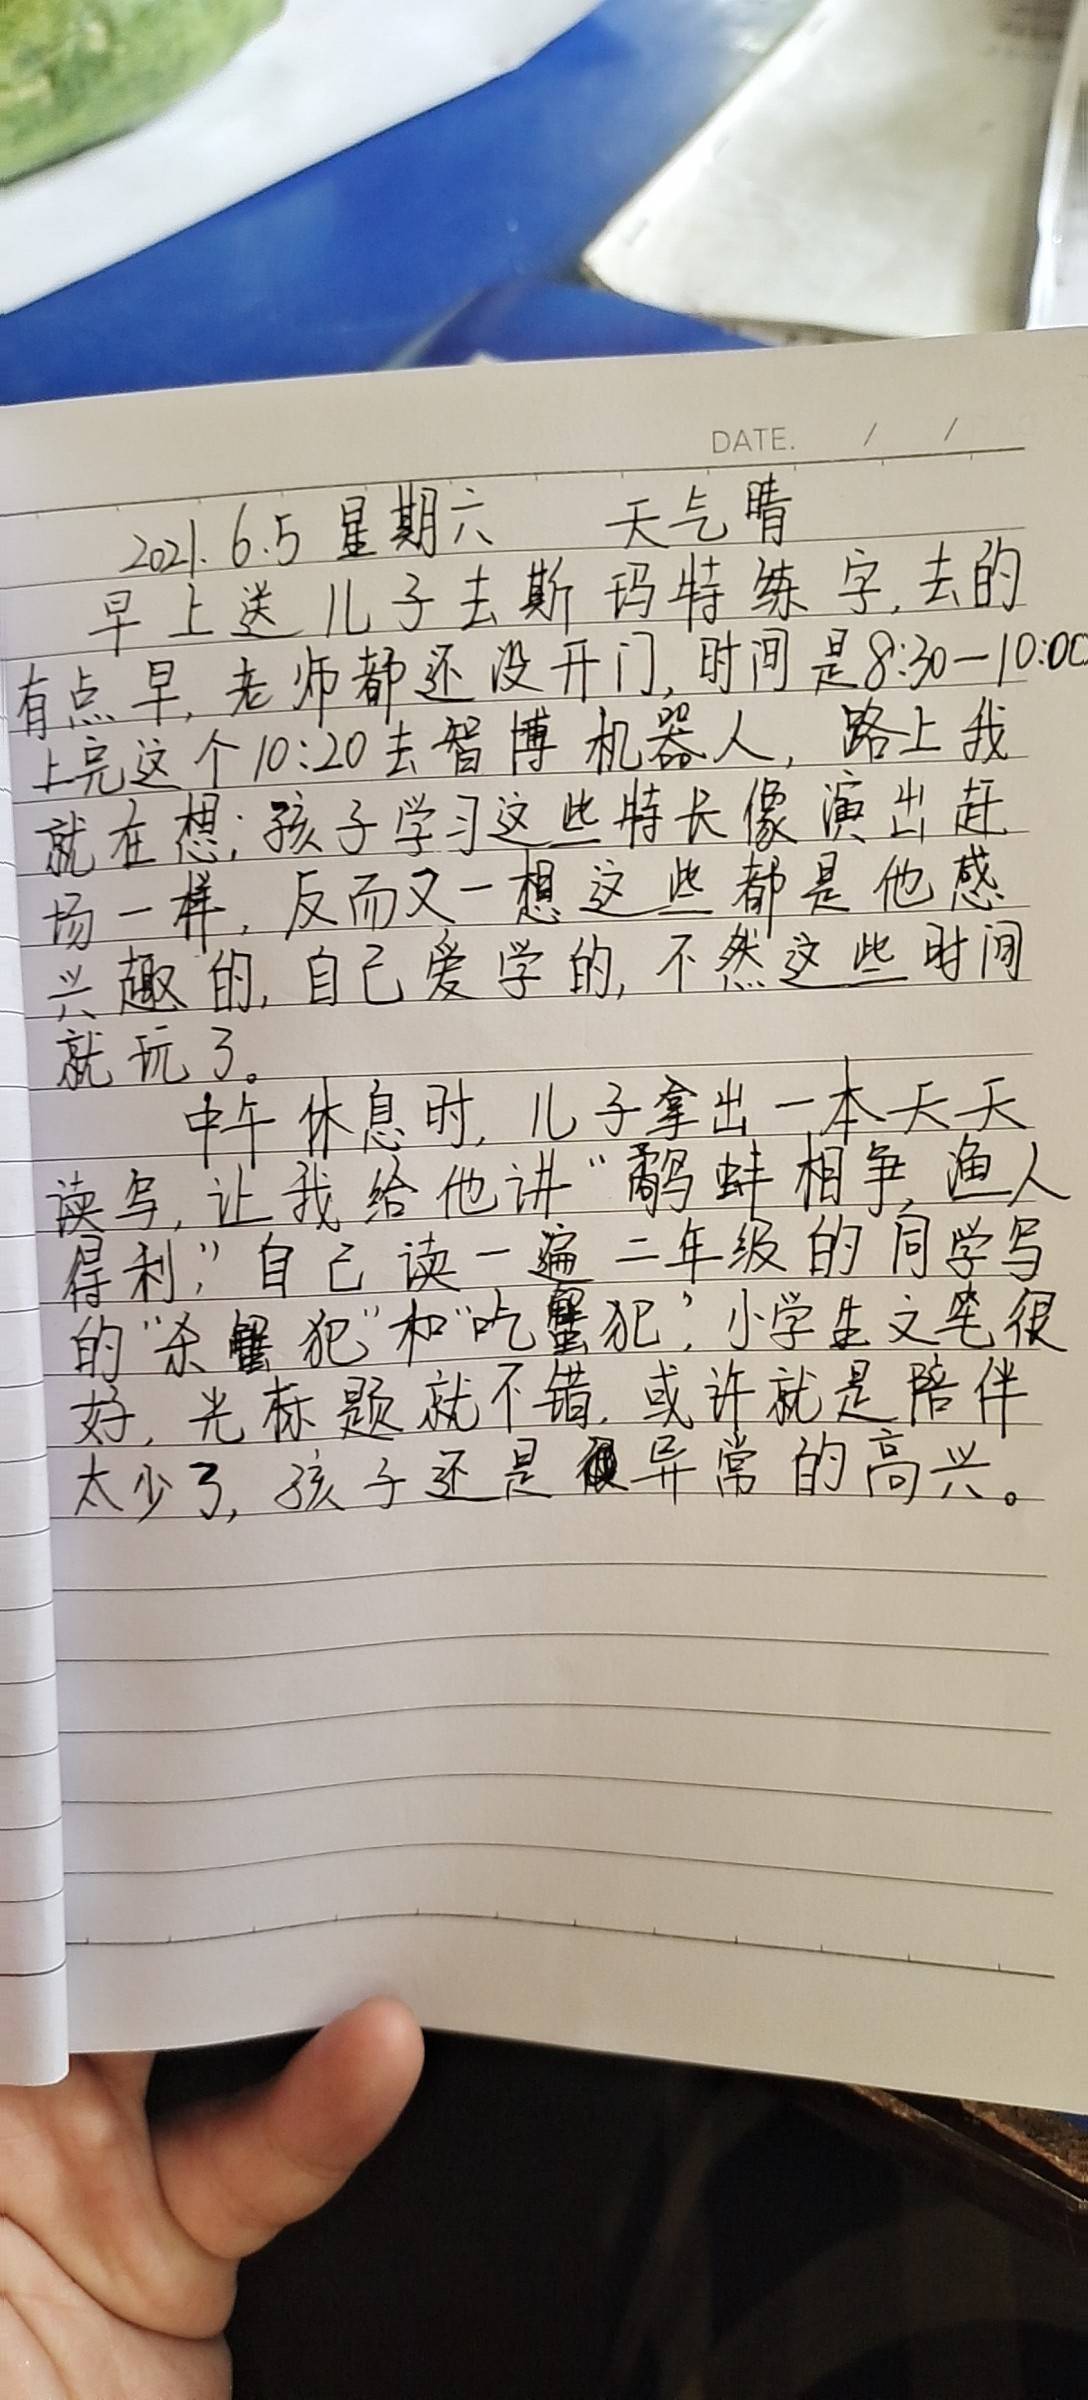 DATE. / /
2021.6.5 星期六 天气晴
早上送儿子去斯玛特练字,去的
有点早,老师都还没开门,时间是8:30-10:00
上完这个10:20去智博机器人,路上我
就在想;孩子学习这些特长像演出赶
场一样,反而又一想这些都是他感
兴趣的,自己爱学的,不然这些时间
就玩了。
中午休息时,儿子拿出一本天天
读写,让我给他讲“鹬蚌相争,渔人
得利,”自己读一遍二年级的同学写
的“杀蟹犯”和“吃蟹犯”,小学生文笔很
好,光标题就不错.或许就是陪伴
太少了,孩子还是异常的高兴。